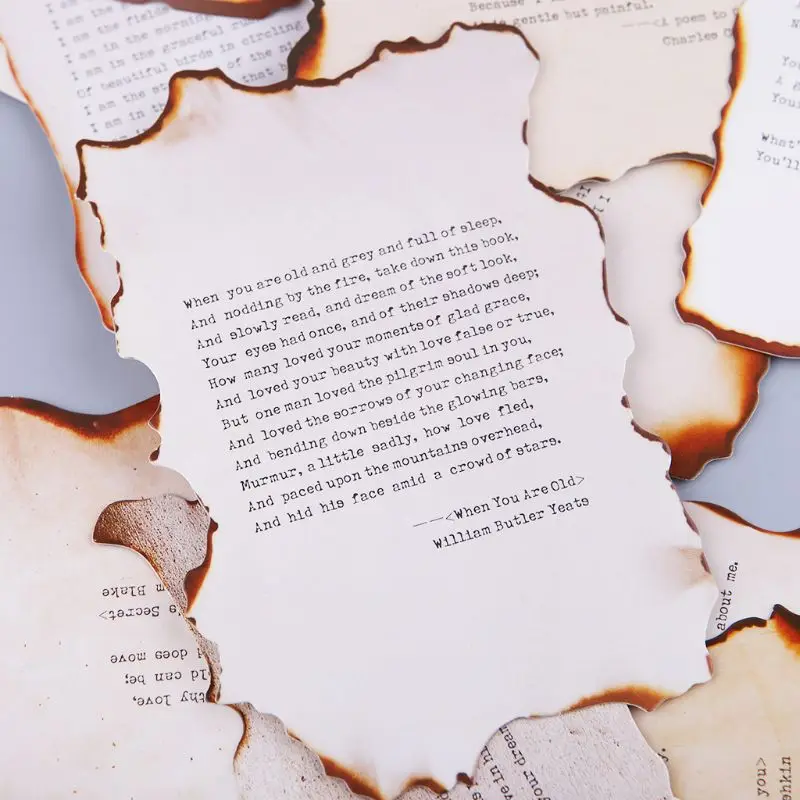 I am the fields
I am in the morning
I am in the graceful
Of beautiful birds in circling
I am the
I am in th
Because I
is gentle but painful.
——<A poem to
Charles C
You
A
You
What'
You'll
When you are old and grey and full of sleep,
And nodding by the fire, take down this book,
And slowly read, and dream of the soft look,
Your eyes had once, and of their shadows deep;
How many loved your moments of glad grace,
And loved your beauty with love false or true,
But one man loved the pilgrim soul in you,
And loved the sorrows of your changing face;
And bending down beside the glowing bars,
Murmur, a little sadly, how love fled,
And paced upon the mountains overhead,
And hid his face amid a crowd of stars.
——<When You Are Old>
William Butler Yeats
thy love,
ld can be;
d does move
's Secret>
m Blake
about me.
your dream
you>
hkin